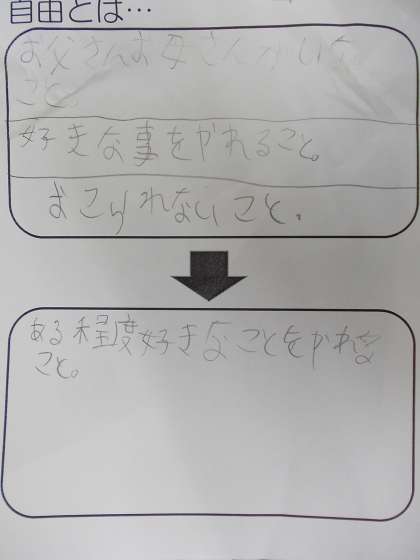 自由とは…
お父さんお母さんがいな
こと。
好きな事をやれること。
おこられないこと。
ある程度好きなことをやれる
こと。